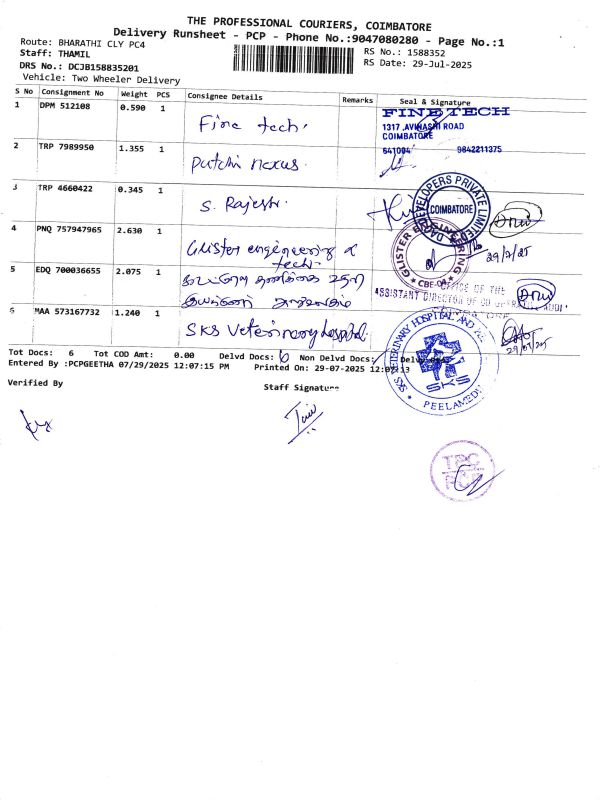 THE PROFESSIONAL COURIERS, COIMBATORE
Delivery Runsheet - PCP - Phone No.:9047080280 - Page No.:1
Route: BHARATHI CLY PC4
RS No.: 1588352
Staff: THAMIL
RS Date: 29-Jul-2025
DRS No.: DCJB158835201
Vehicle: Two Wheeler Delivery
S No Consignment No Weight PCS Consignee Details Remarks Seal & Signature
1 DPM 512108 0.590 1 Fine tech.
FINE TECH
1317 ,AVINASHI ROAD
COIMBATORE
641004 9842211375
2 TRP 7989950 1.355 1 Dutchi nexus.
3 TRP 4660422 0.345 1 S. Rajestr.
DEVELOPERS PRIVATE LIMITED
COIMBATORE
4 PNQ 757947965 2.630 1 Glister engineering &
tech.
GLISTER ENGINEERING
CBE-04
29/7/25
5 EDQ 700036655 2.075 1
OFFICE OF THE
ASSISTANT DIRECTOR OF CO OPERATIVE AUDIT
6 MAA 573167732 1.240 1 SKS Veterinary hospital.
SKS VETERINARY HOSPITAL AND
SKS
PEELAMEDU
29/07/25
Tot Docs: 6 Tot COD Amt: 0.00 Delvd Docs: 6 Non Delvd Docs:
Entered By :PCPGEETHA 07/29/2025 12:07:15 PM Printed On: 29-07-2025 12:07:13
Verified By Staff Signature
TPC
PCP